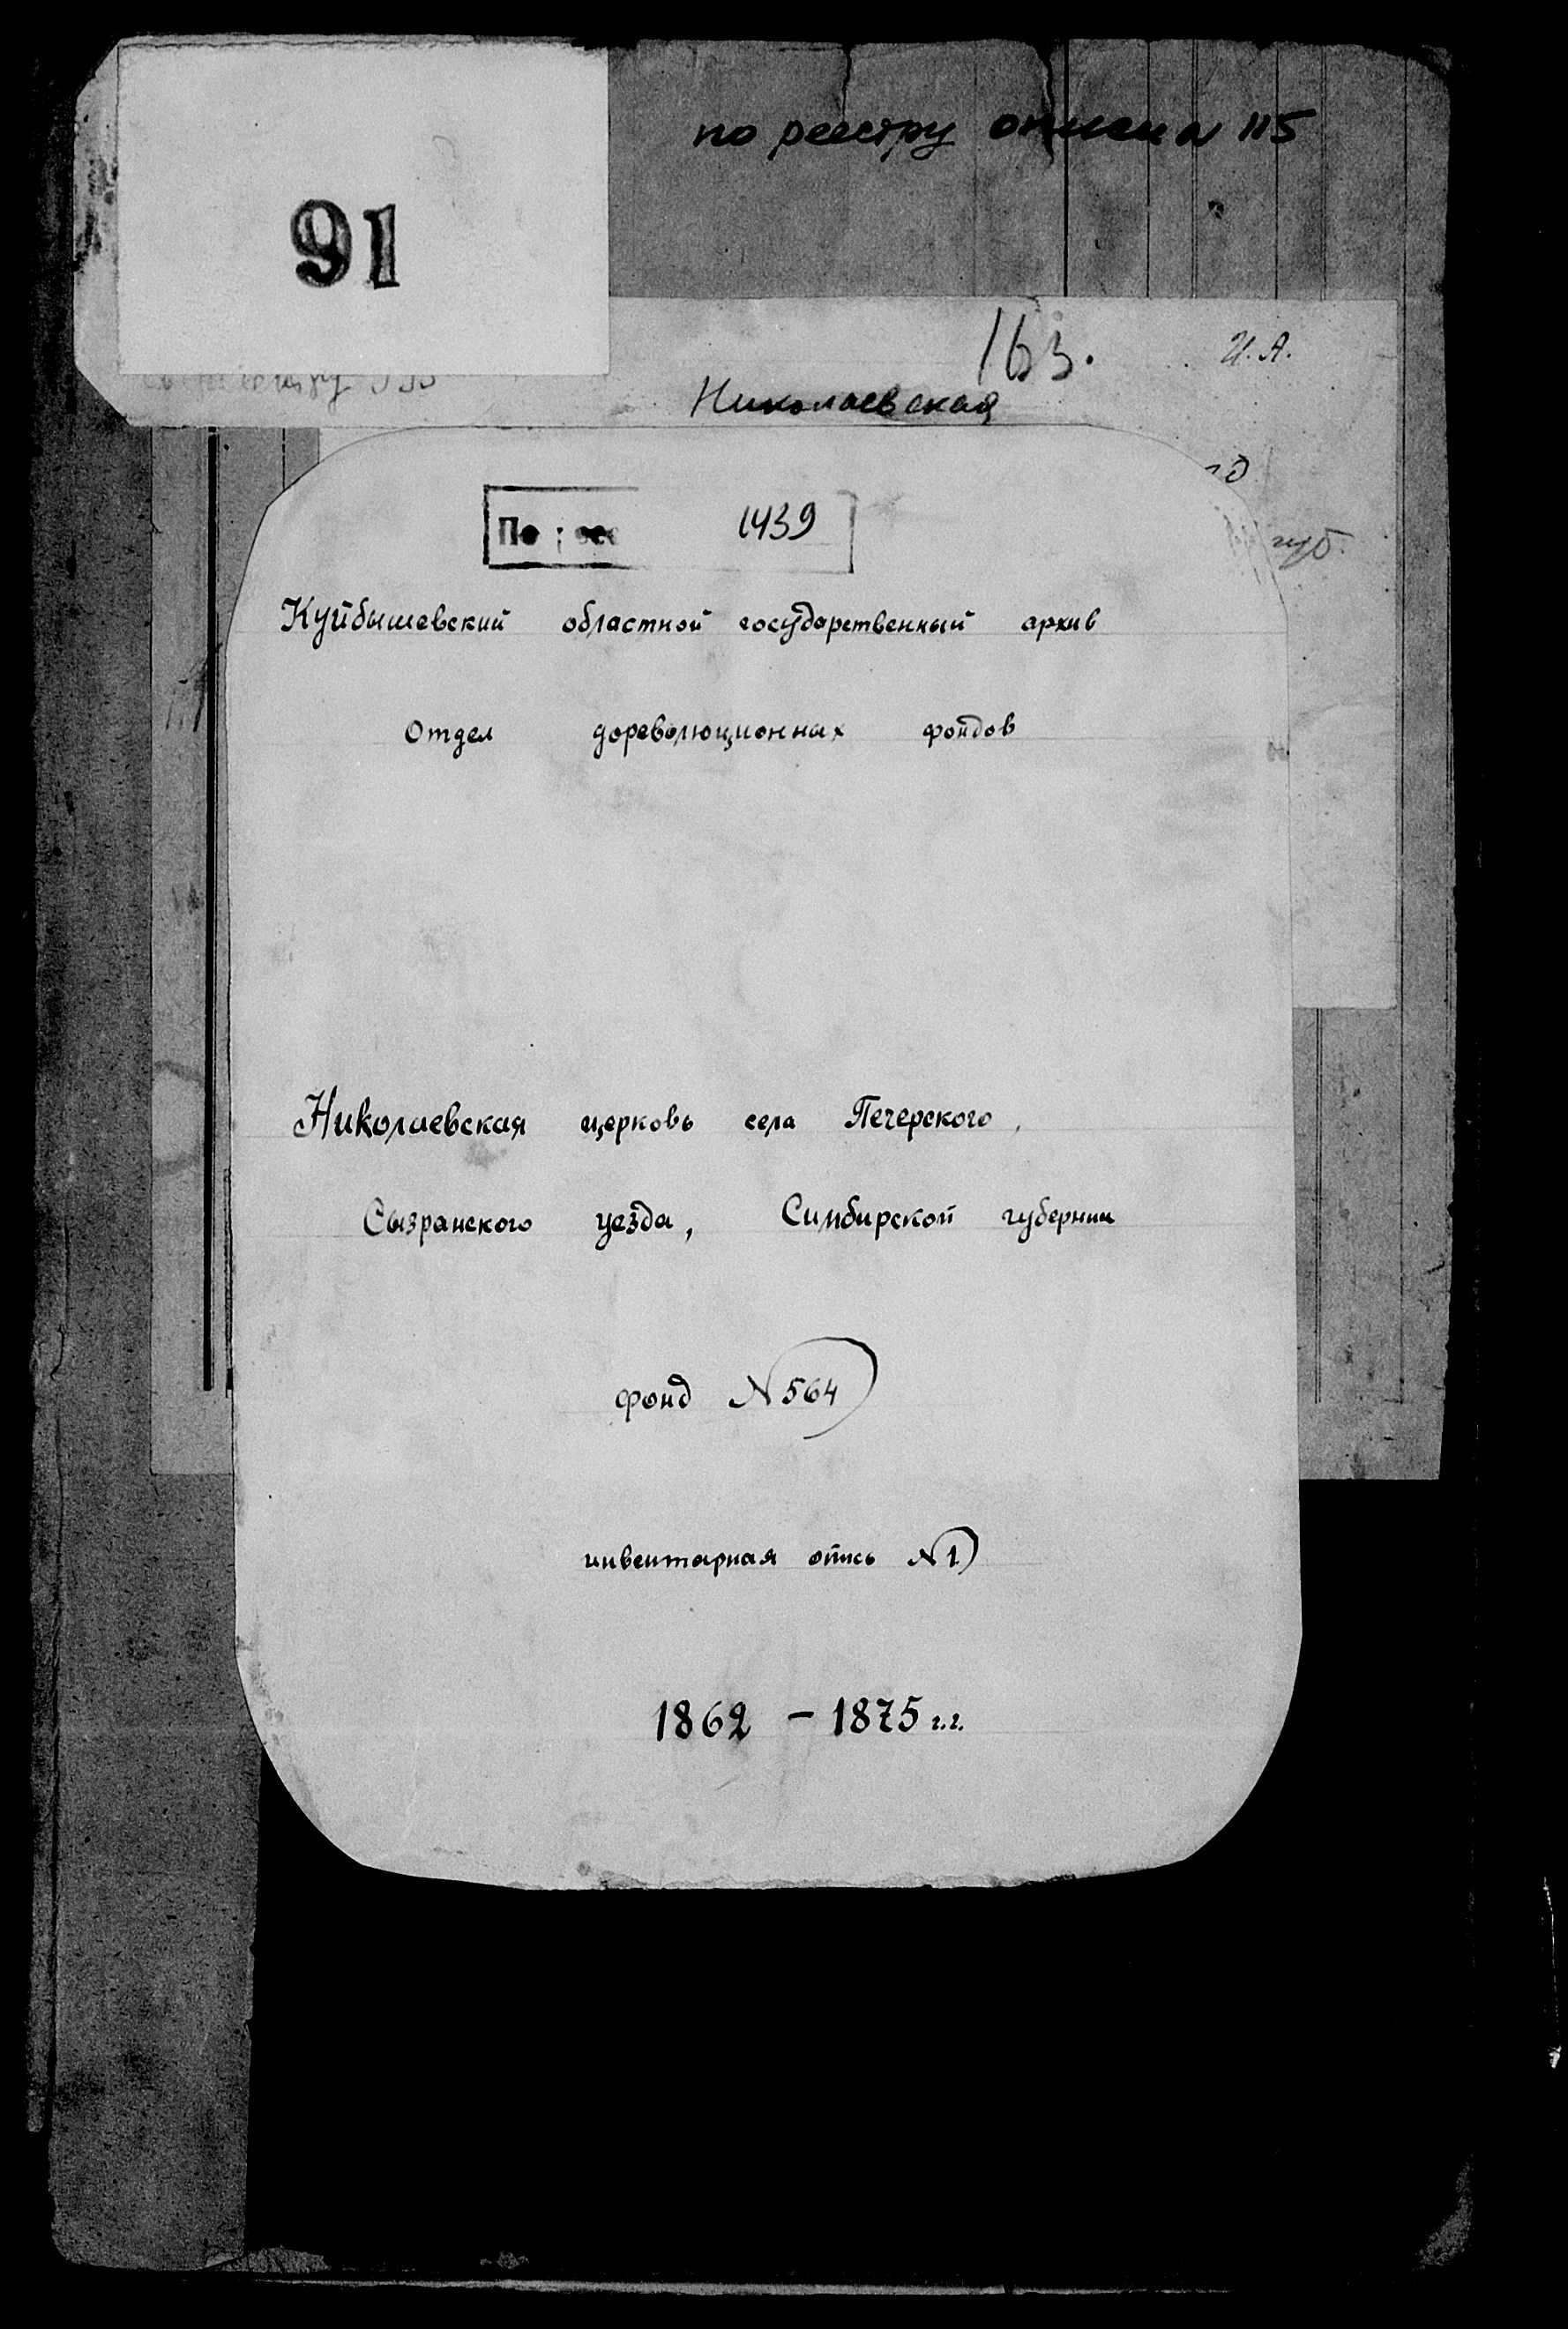 по реестру описи 115
91
163.
И. А.
Николаевская
губ.
По 1439
Куйбышевский областной государственный архив
Отдел дореволюционных фондов
Николаевская церковь села Печерского,
Сызранского уезда, Симбирской губернии
фонд N 564
инвентарная опись N 1
1862 – 1875 г.г.